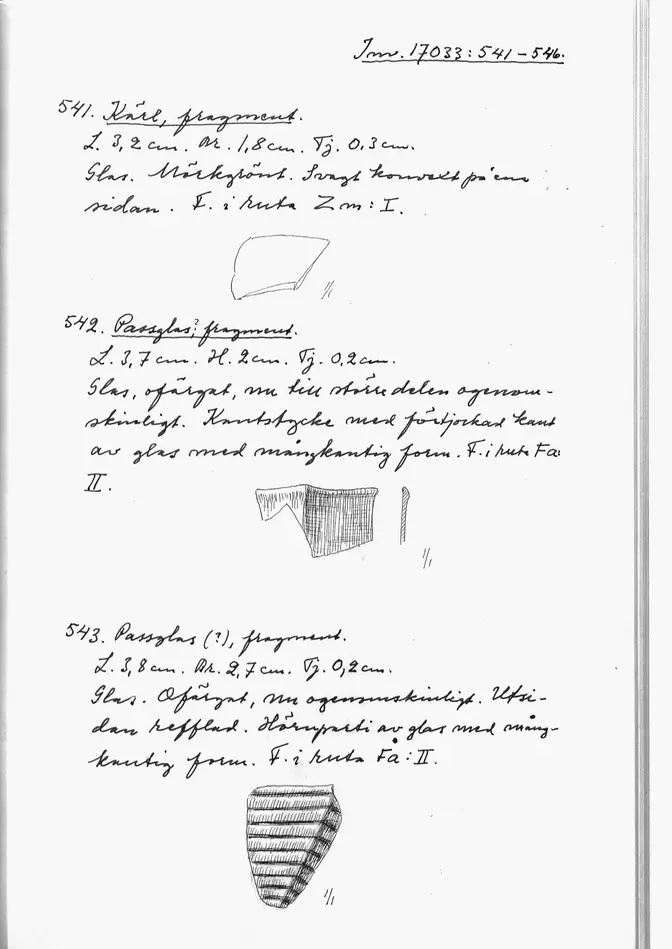 Inv. 17033:541-546.
541. Kärl, fragment.
L. 3,2cm. Br. 1,8cm. Tj. 0,3cm.
Glas. Mörkgrönt. Svagt konvext på ena
sidan. F. i ruta Zm:I.
1/1
542. Passglas?, fragment.
L. 3,7cm. H. 2cm. Tj. 0,2cm.
Glas, ofärgat, nu till större delen ogenom-
skinligt. Kantstycke med förtjockad kant
av glas med mångkantig form. F. i ruta Fa:
II.
1/1
543. Passglas (?), fragment.
L. 3,8cm. Br. 2,7cm. Tj. 0,2cm.
Glas. Ofärgat, nu ogenomskinligt. Utsi-
dan refflad. Hörnparti av glas med mång-
kantig form. F. i ruta Få:II.
1/1